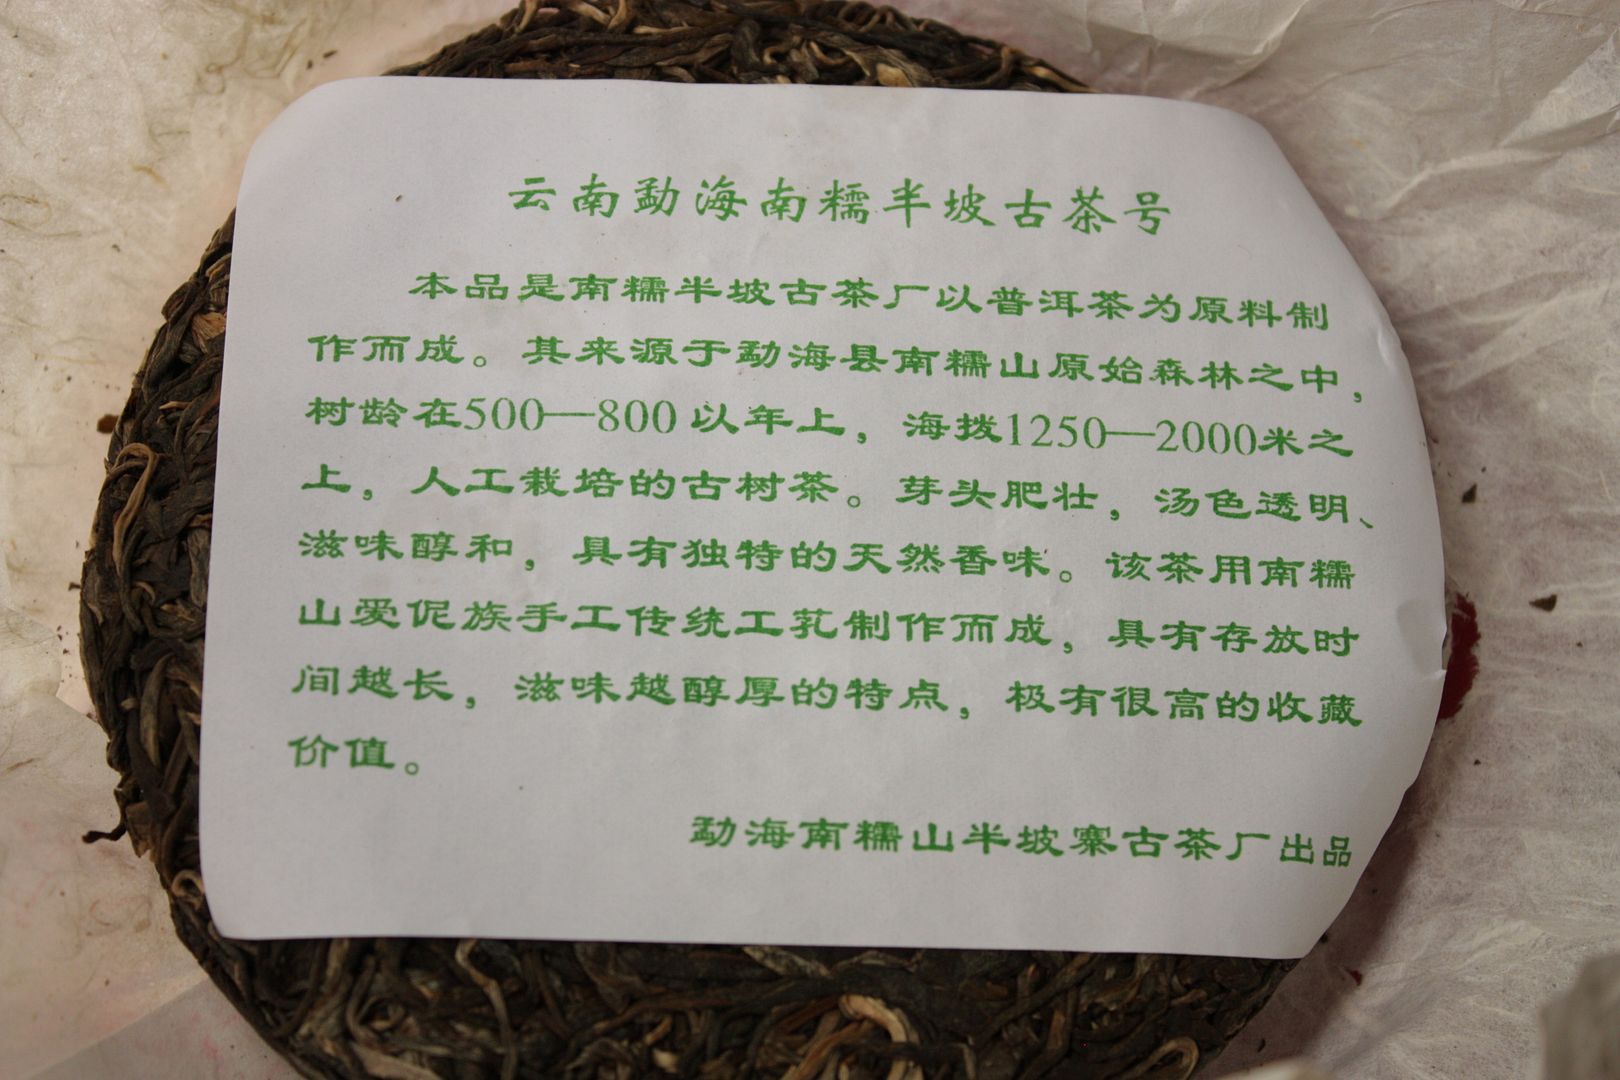 云南勐海南糯半坡古茶号
本品是南糯半坡古茶厂以普洱茶为原料制
作而成。其来源于勐海县南糯山原始森林之中，
树龄在500—800以年上，海拨1250—2000米之
上，人工栽培的古树茶。芽头肥壮，汤色透明、
滋味醇和，具有独特的天然香味。该茶用南糯
山爱伲族手工传统工艺制作而成，具有存放时
间越长，滋味越醇厚的特点，极有很高的收藏
价值。
勐海南糯山半坡寨古茶厂出品